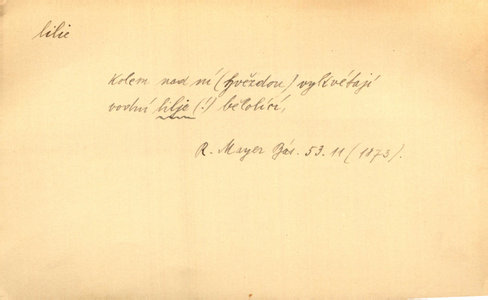 lilie
Kolem nad ní (hvězdou) vykvétají
vodní lilje (!) bělolící,
R. Mayer Bás. 53. 11 (1873).